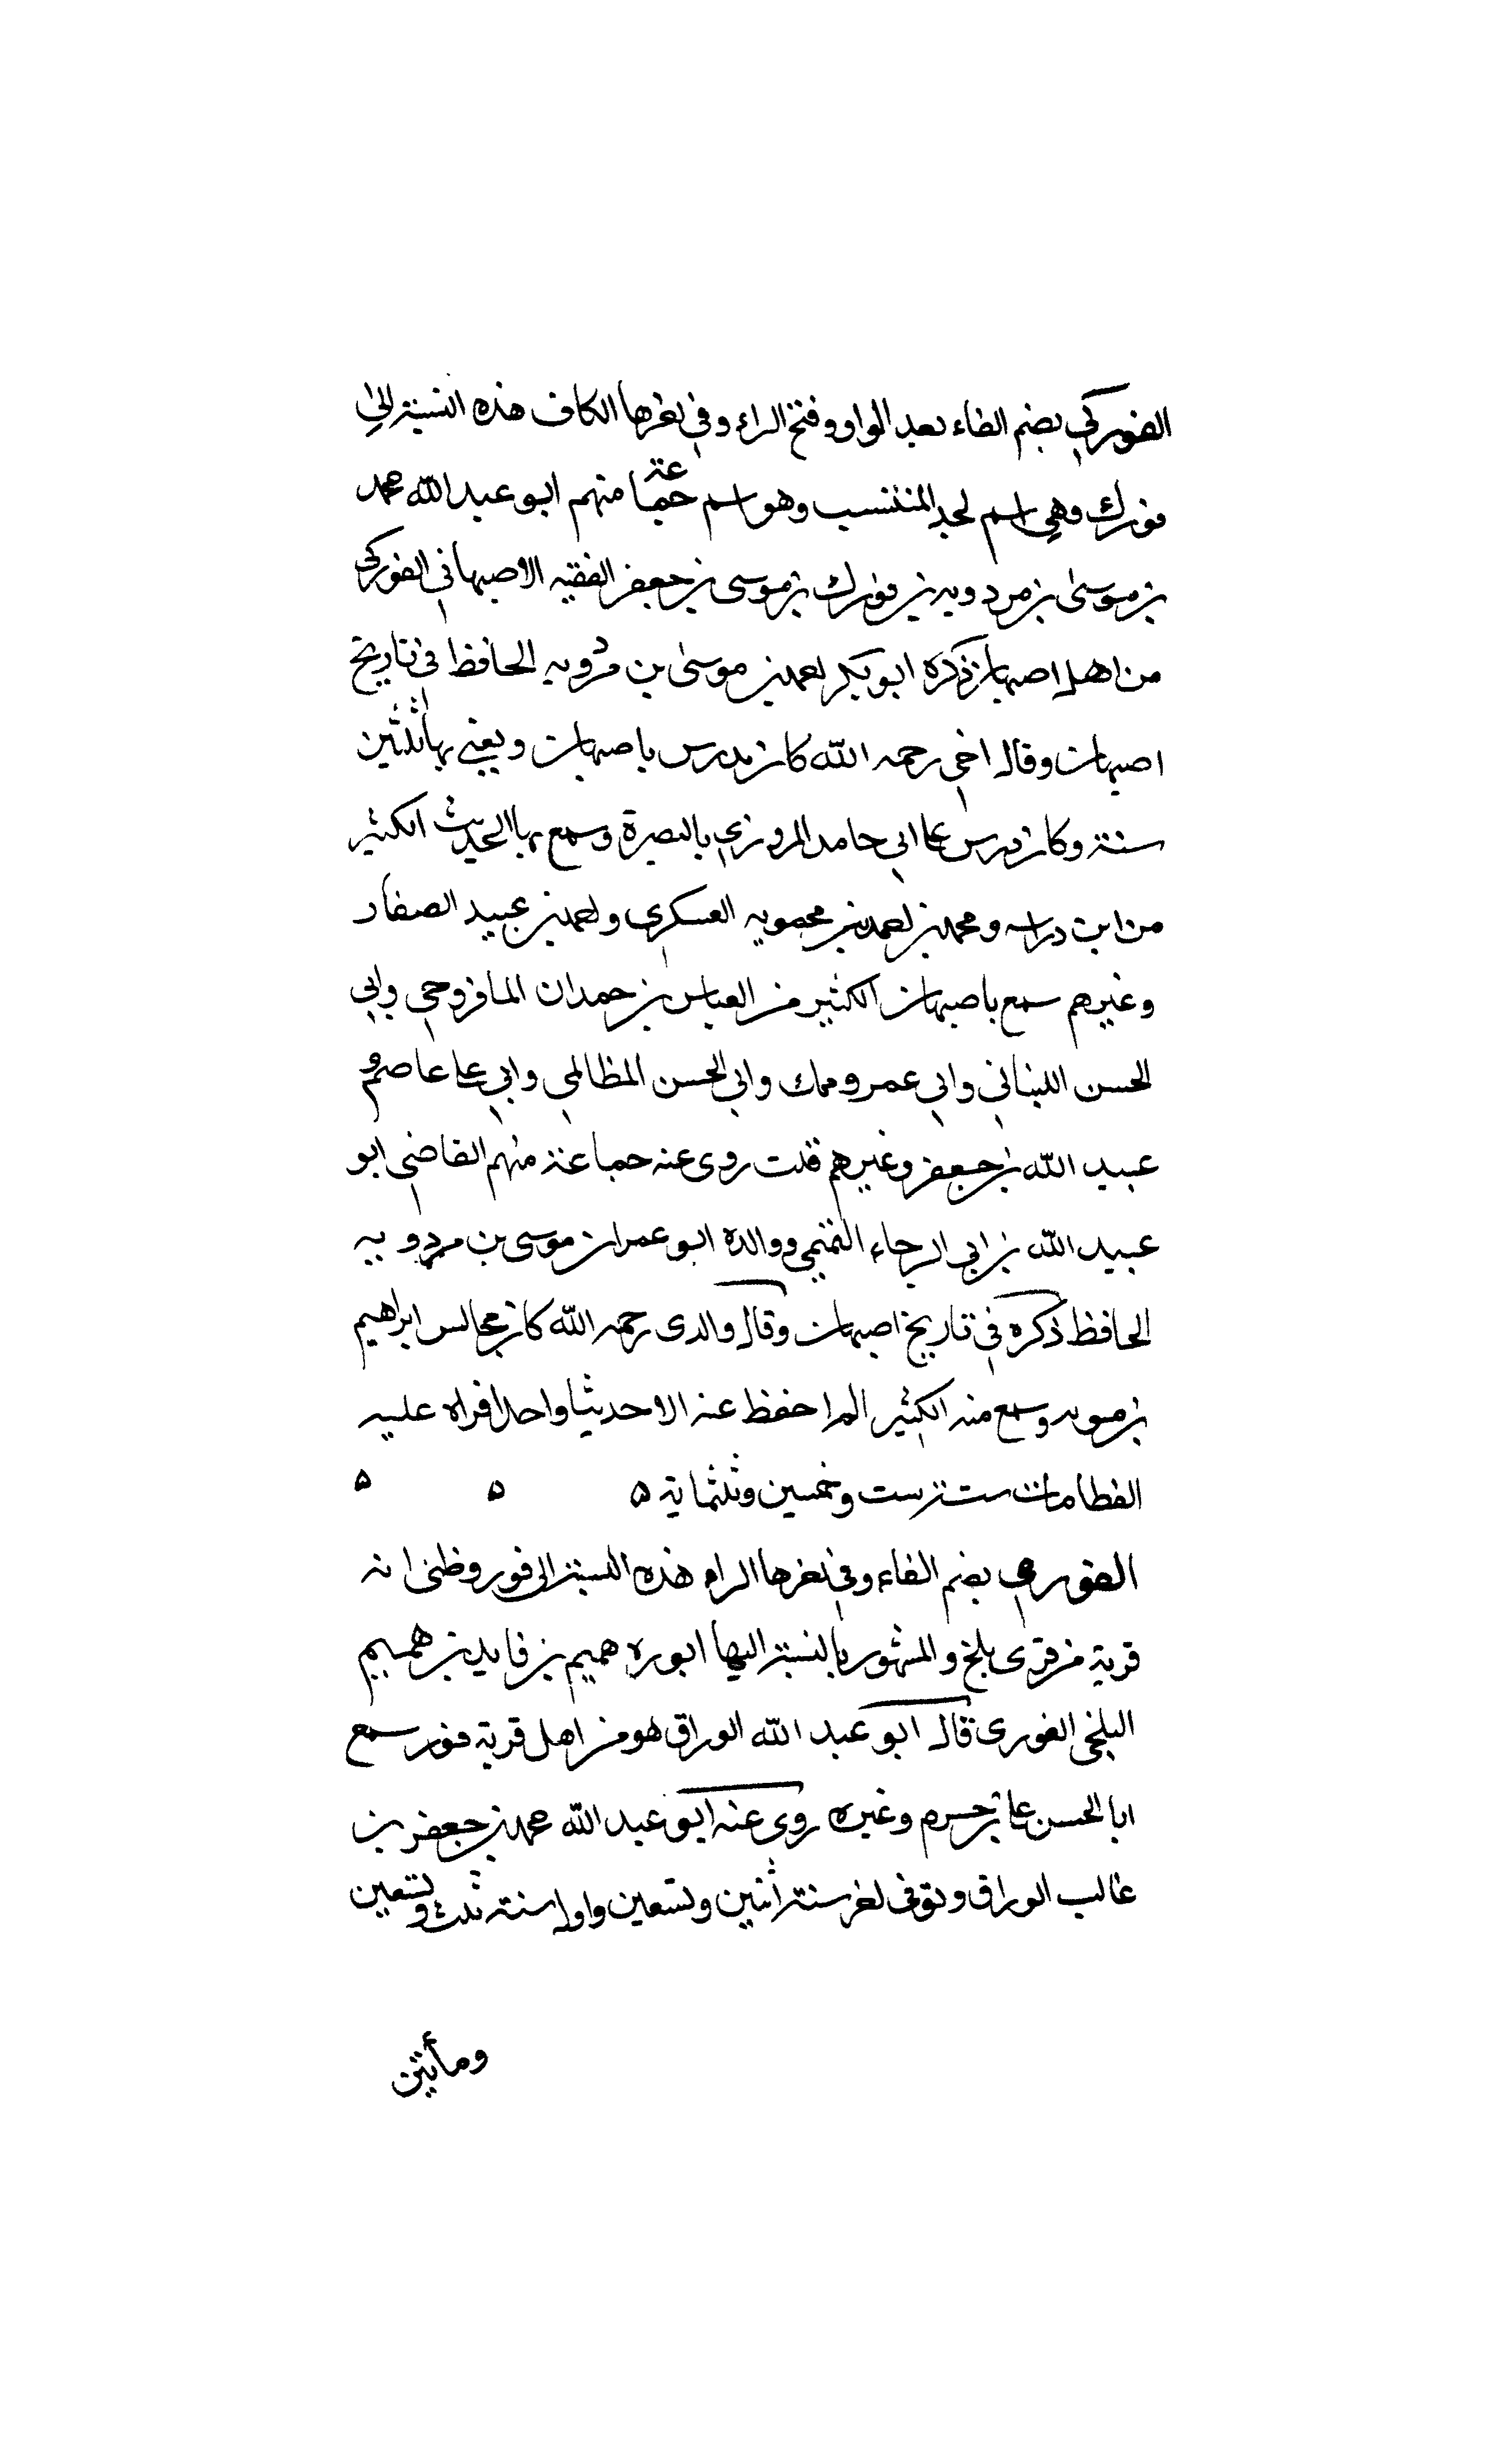 الفوركي بضم الفاء بعد الواو وفتح الراء وفي اخرها الكاف هذه النسبة الى
فورك وهي اسم لجد المنتسب وهو اسم جماعة منهم ابو عبد الله محمد
بن موسى بن مردويه بن فورك بن موسى بن جعفر الفقيه الاصبهاني الفوركي
من اهل اصبهان ذكره ابو بكر احمد بن موسى بن مردويه الحافظ في تاريخ
اصبهان وقال اخي رحمه الله كان يدرس باصبهان ويفتي بها ثلثين
سنة وكان درس على ابي حامد المروزي بالبصرة وسمع بها الحديث الكثير
من ابن دراسه ومحمد بن احمد بن محمويه العسكري واحمد بن عبيد الصفار
وغيرهم سمع باصبهان الكثير من العباس بن حمدان المافروجي وابي
الحسن اللبناني وابي عمرو ممك وابي الحسن المظالمي وابي علي عاصم و
عبيد الله بن جعفر وغيرهم قلت روى عنه جماعة منهم القاضي ابو
عبيد الله بن ابي الرجاء التميمي ووالده ابو عمران موسى بن مردويه
الحافظ ذكره في تاريخ اصبهان وقال والدي رحمه الله كان يجالس ابراهيم
بن وسمع منه الكثير لم احفظ عنه الا حديثا واحدا قراه عليه
مات سنة ست وخمسين وثلثماية ه ه ه
الفوري بضم الفاء وفي اخرها الراء هذه النسبة الى فور وظني انه
قرية من قرى بلخ والمشهور بالنسبة اليها ابو ره هميم بن فايد بن هميم
البلخي الفوري قال ابو عبد الله الوراق هو من اهل قرية فور سمع
ابا الحسن علي بن خشرم وغيره روى عنه ابو عبد الله محمد بن جعفر بن
غالب الوراق وتوفي اخر سنة اثنين وتسعين واول سنة ثلث وتسعين
ومأتين